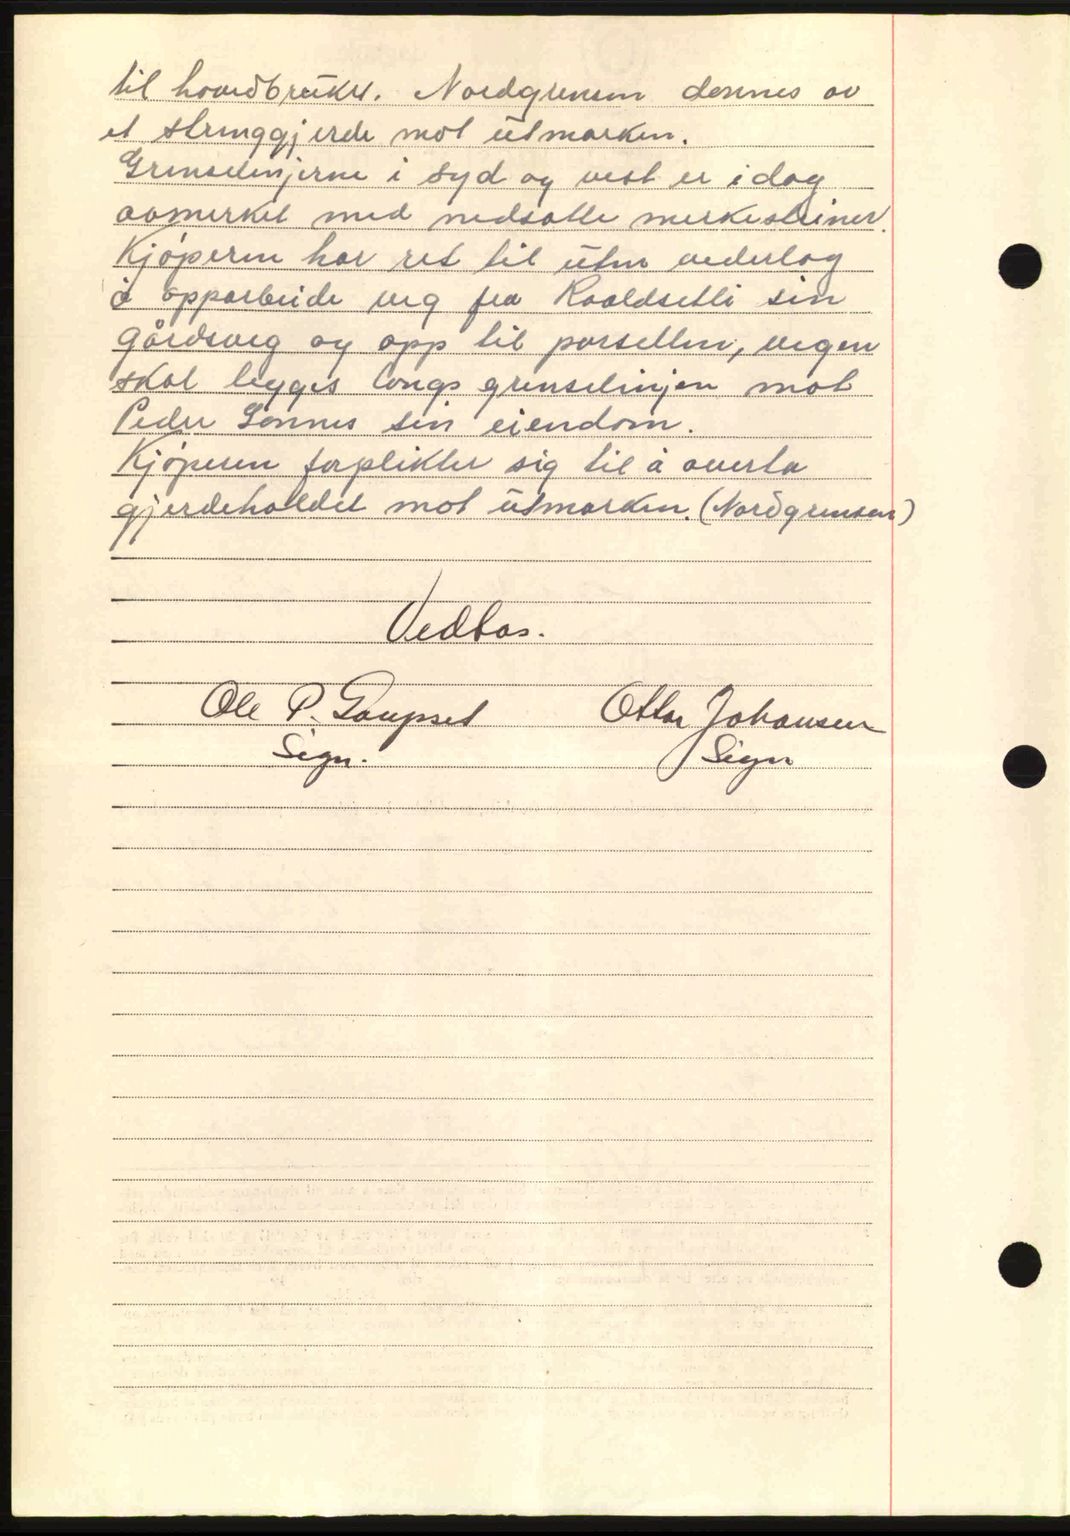 til hovedbruket. Nordgrensen dennes av
et strenggjerde mot utmarken.
Grenselinjerne i syd og vest er idag
avmerket med nedsatte merkesteiner.
Kjøperen har ret til uten vederlag
å opparbeide veg fra Roaldsetli sin
gårdsveg og opp til parsellen, vegen
skal legges langs grenselinjen mot
Peder Sonnes sin eiendom.
Kjøperen forplikter sig til å overta
gjerdeholdet mot utmarken. (Nordgrensen)
Vedtas.
Ole P. Gaupset Ottar Johansen
Sign. Sign